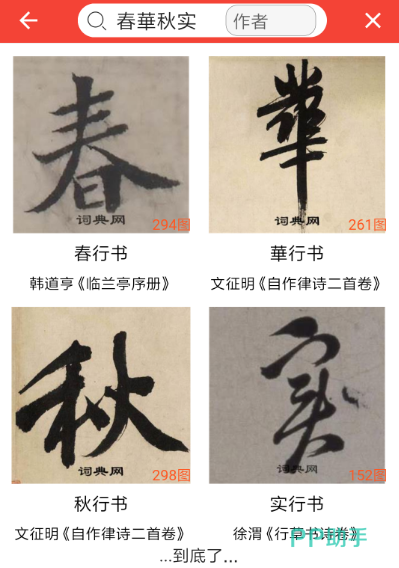 春華秋实 作者
春 華
词典网 294图 词典网 261图
春行书 華行书
韩道亨《临兰亭序册》 文征明《自作律诗二首卷》
秋 实
词典网 298图 词典网 152图
秋行书 实行书
文征明《自作律诗二首卷》 徐渭《行草书诗卷》
PP助手
...到底了...